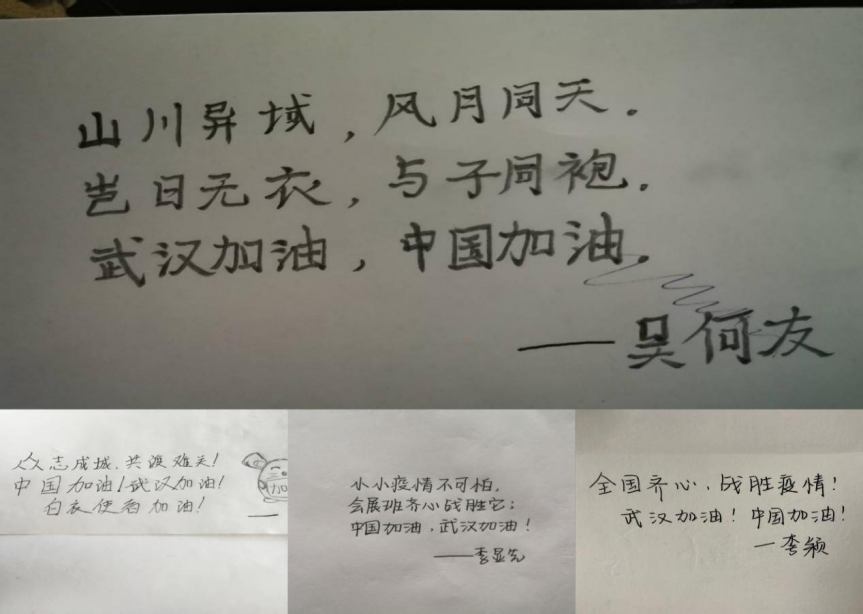 山川异域，风月同天.
岂曰无衣，与子同袍.
武汉加油，中国加油.
——吴何友
众志成城，共渡难关!
中国加油!武汉加油!
白衣使者加油!
加
小小疫情不可怕，
会展班齐心战胜它；
中国加油，武汉加油!
——李显先
全国齐心，战胜疫情!
武汉加油!中国加油!
—李颖